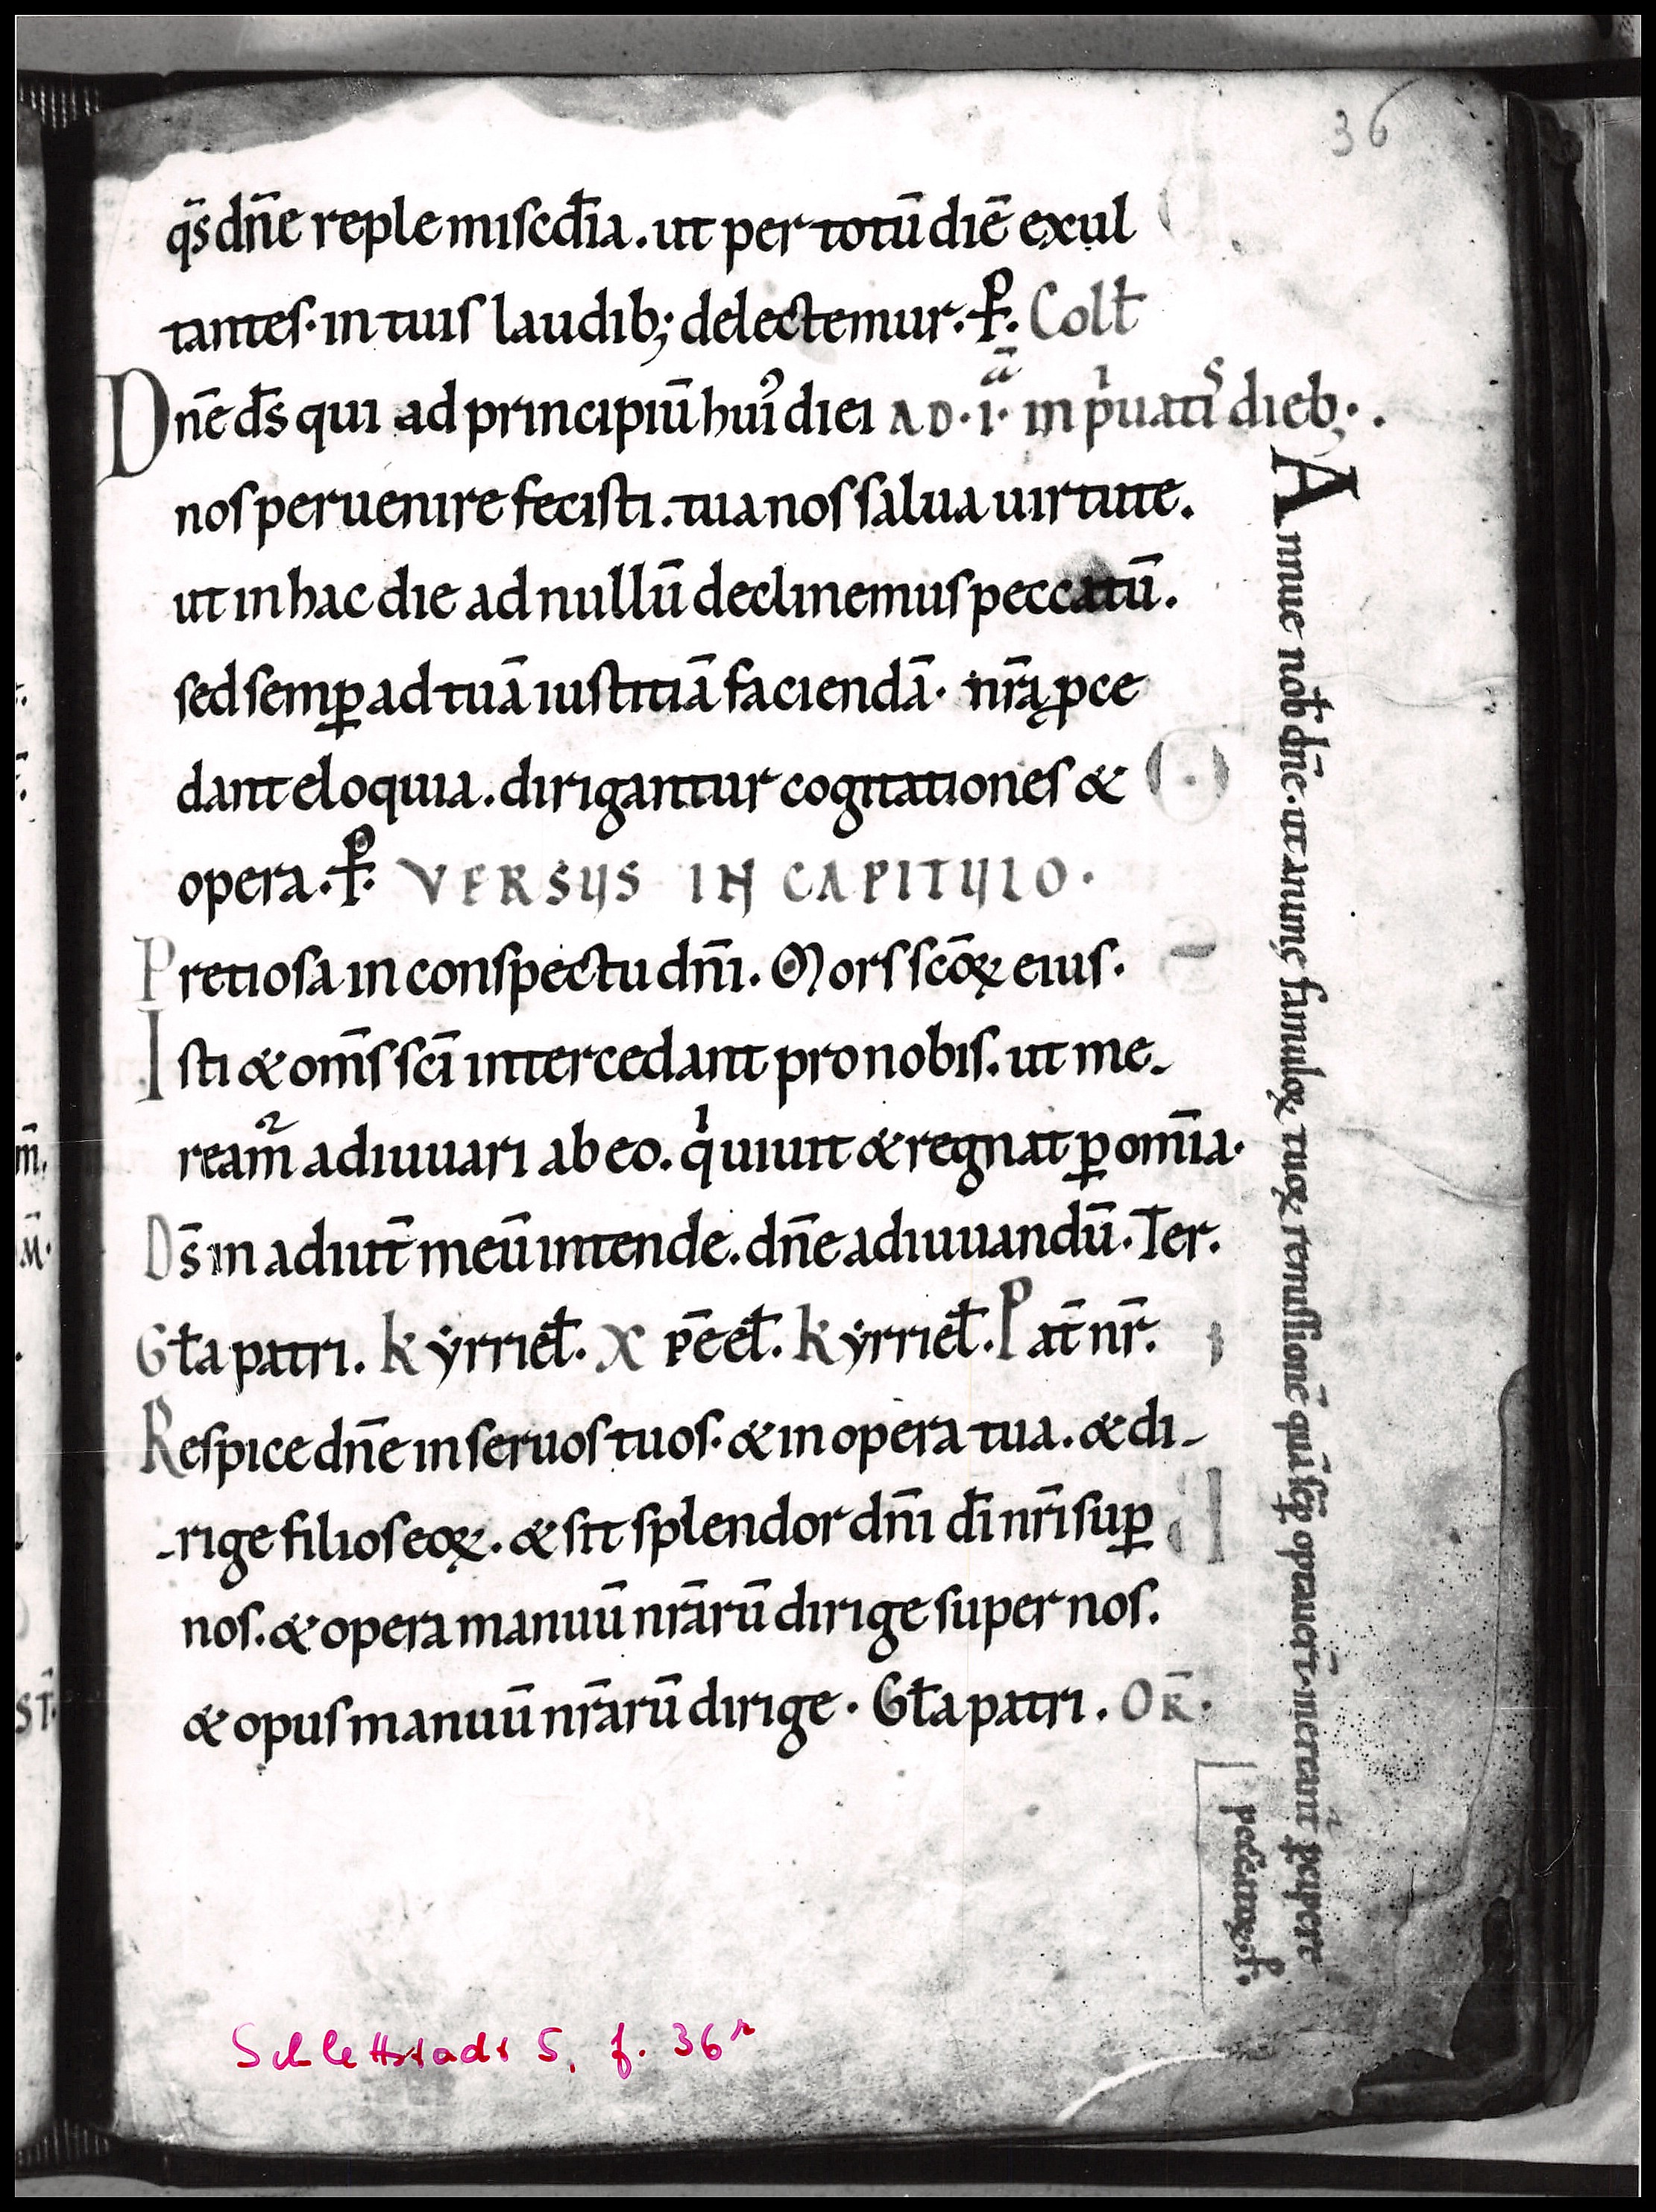 36
qs̄ dn̄e reple misc̄dia. ut per totū diē exul
tantes. in tuis laudib; delectemur. P̶. Coll̄
Dn̄e ds̄ qui ad principiū hui᾽ diei AD · I · ā in p͛uatis dieb; .
nos peruenire fecisti. tua nos salua uirtute.
ut in hac die ad nullū declinemus peccatū.
sed semꝑ ad tuā iustitiā faciendā. nr̄a ꝓce
dant eloquia. dirigantur cogitationes &
opera. P̶. VERSUS IN CAPITULO.
Pretiosa in conspectu dn̄i. Mors sc̄oꝝ eius.
Isti & om̄s sc̄i intercedant pro nobis. ut me-
ream̄ adiuuari ab eo. qͥ uiuit & regnat ꝑ om̄ia.
Ds̄ in adiut̄ meū intende. dn̄e adiuuandū. Ter.
Gl̄a patri. kẏrriel̄. xp̄eel̄. kẏrriel̄. Pat̄ nr̄.
Respice dn̄e in seruos tuos. & in opera tua. & di-
-rige filios eoꝝ. & sit splendor dn̄i dī nr̄i suꝑ
nos. & opera manuū nr̄arū dirige super nos.
& opus manuū nr̄arū dirige. Gl̄a patri. OR̄.
Annue nob̄ dn̄e. ut animę famuloꝝ tuoꝝ remissionē quā sēꝑ optauer̄t. mereant᾽ ꝑcipere
peccatoꝝ. P̶.
Schlettstadt 5, f. 36r